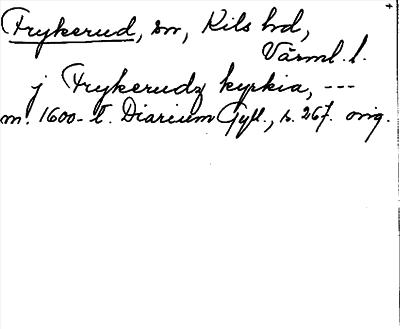 Frykerud, sn, Kils hd,
Värml. l.
j Frykerudz kyrkia, ---
m. 1600-t. Diarium Gyll., s. 267. orig.